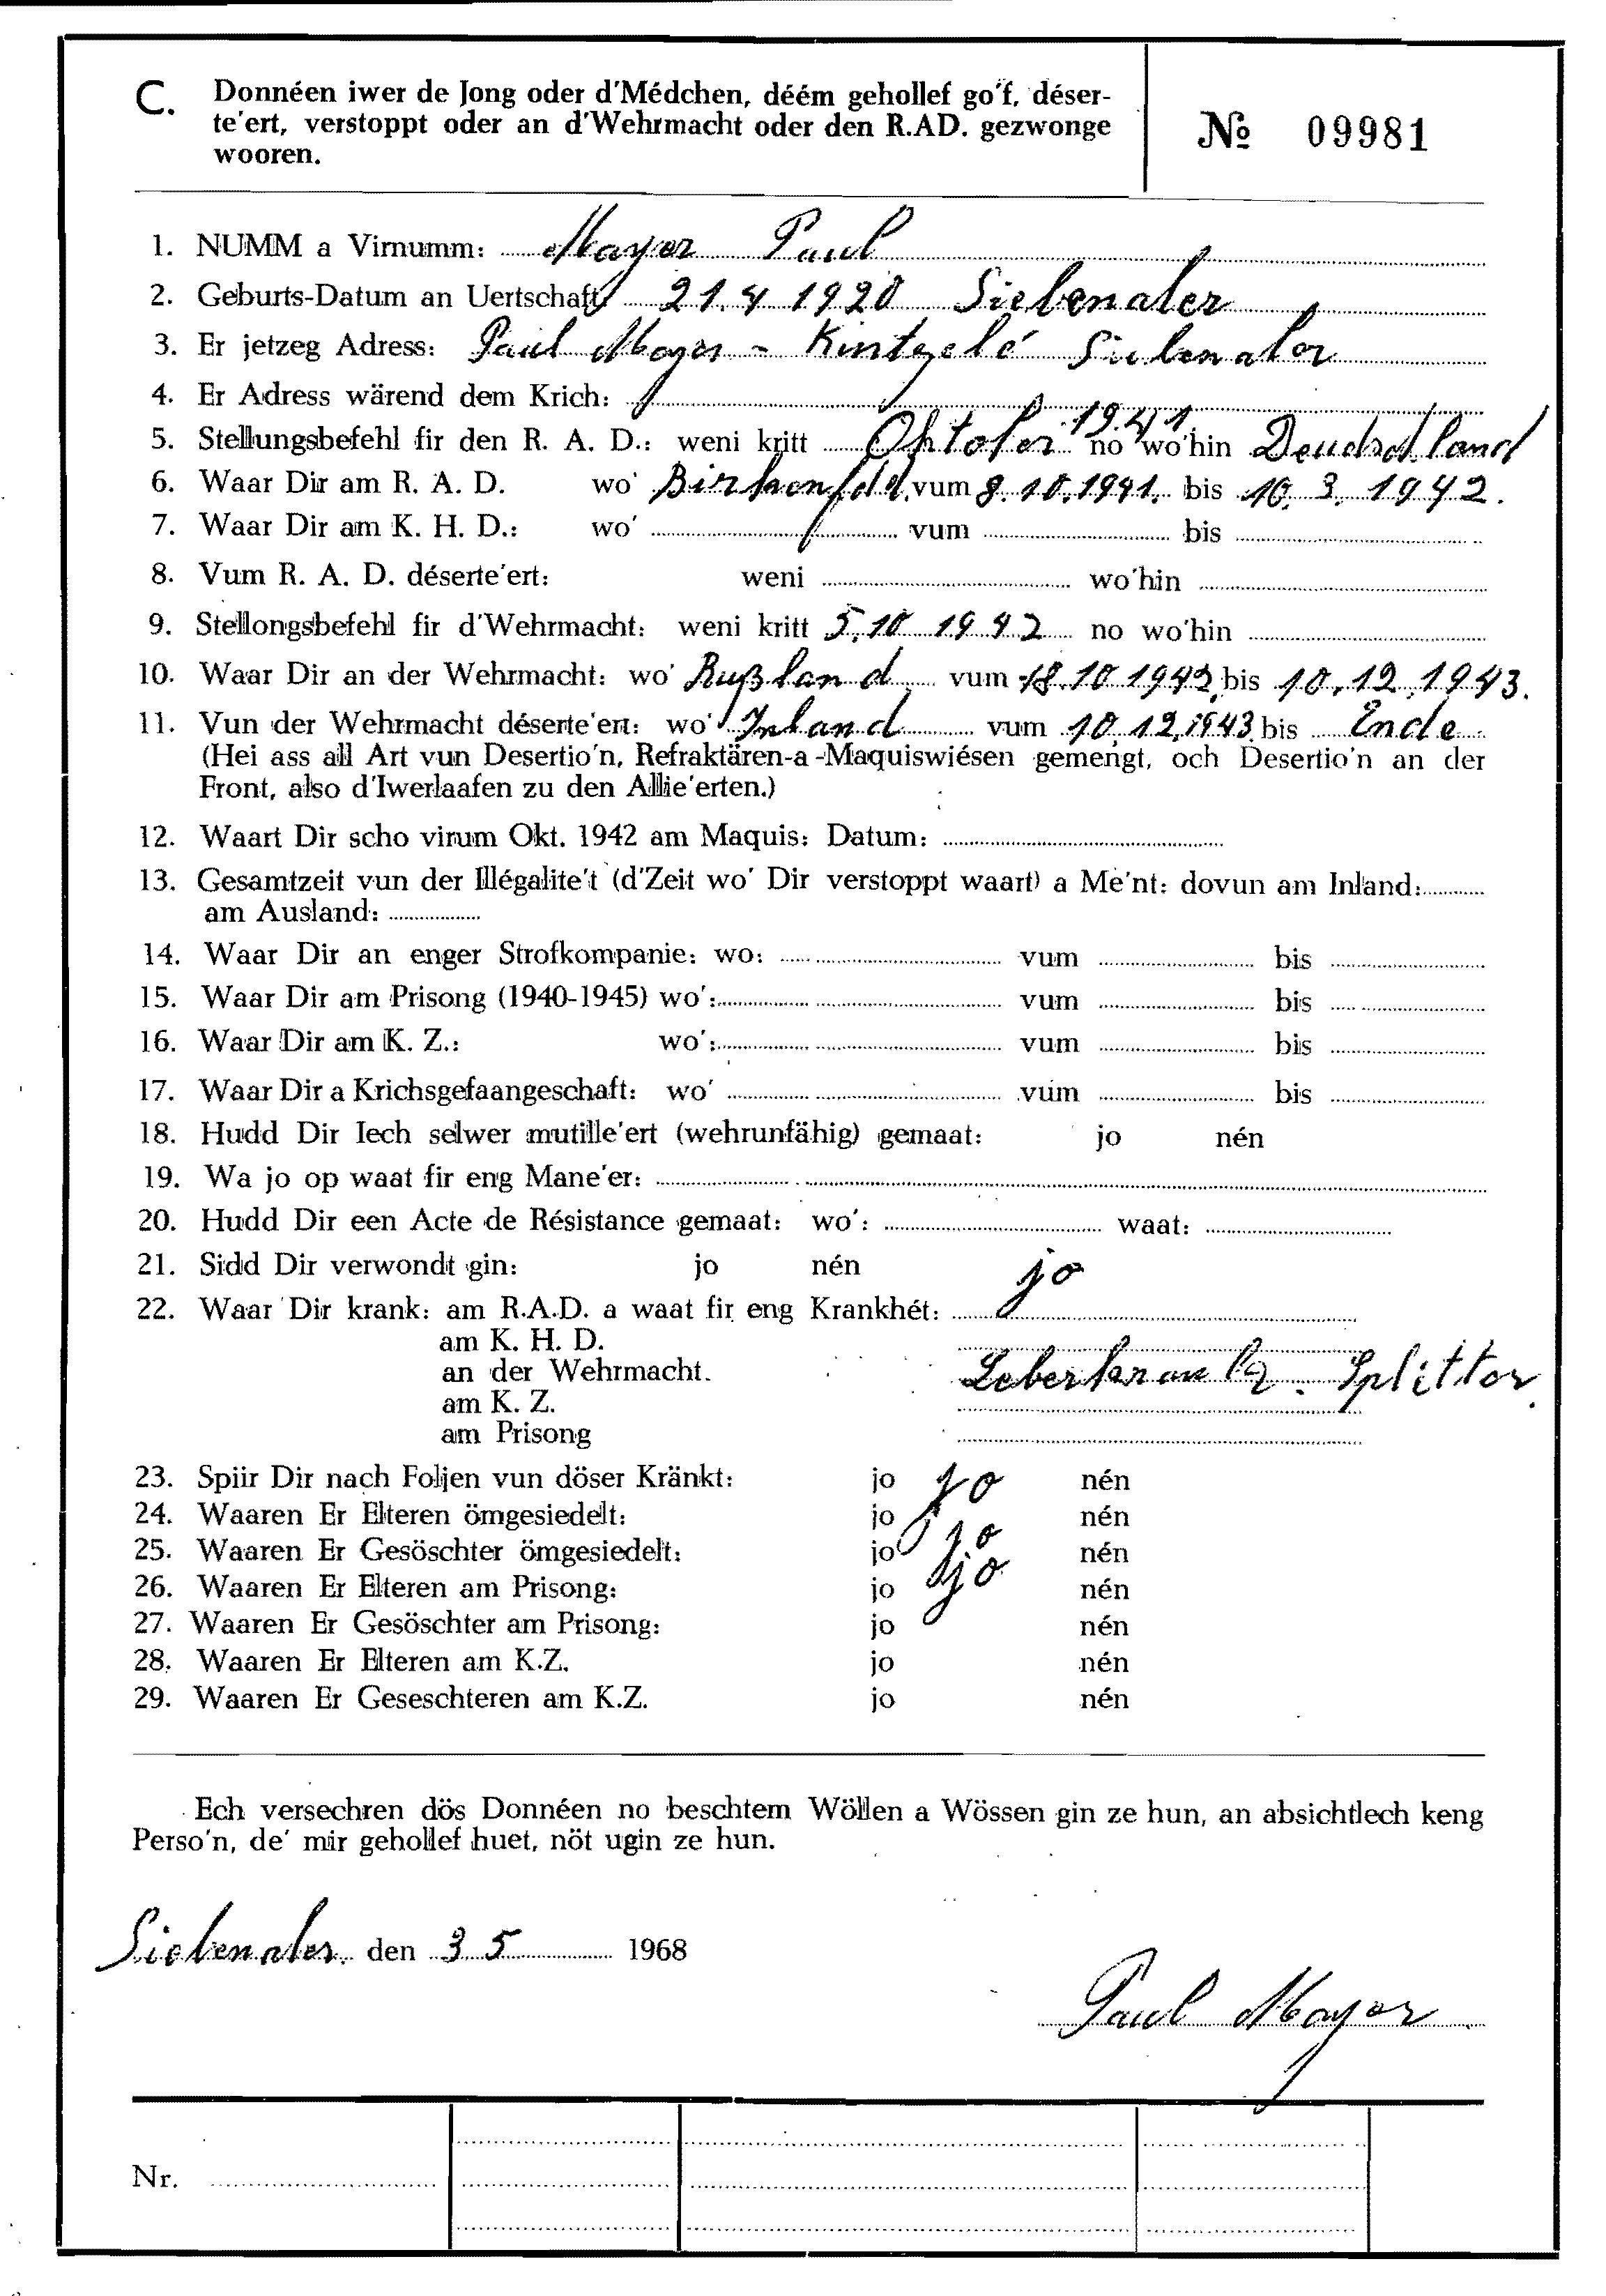 C. Donnéen iwer de Jong oder d'Médchen, déém gehollef go'f, déser-
te'ert, verstoppt oder an d'Wehrmacht oder den R.AD. gezwonge
wooren.
№ 09981
1. NUMM a Virnumm: Mayer Paul
2. Geburts-Datum an Uertschaft 21.4 1920 Siebenaler
3. Er jetzeg Adress: Paul Mayer - Kintzelé Siebenaler
4. Er Adress wärend dem Krich:
5. Stellungsbefehl fir den R. A. D.: weni kritt Oktober 1941 no wo'hin Deudschland
6. Waar Dir am R. A. D. wo' Birkenfeld vum 8.10.1941. bis 10. 3. 1942.
7. Waar Dir am K. H. D.: wo' vum bis
8. Vum R. A. D. déserte'ert: weni wo'hin
9. Stellongsbefehl fir d'Wehrmacht: weni kritt 5.10 1942 no wo'hin
10. Waar Dir an der Wehrmacht: wo' Rußland vum 18.10 1942 bis 10.12.1943.
11. Vun der Wehrmacht déserte'ert: wo' Inland vum 10.12.1943 bis Ende
(Hei ass all Art vun Desertio'n, Refraktären-a-Maquiswiésen gemengt, och Desertio'n an der
Front, also d'Iwerlaafen zu den Allie'erten.)
12. Waart Dir scho virum Okt. 1942 am Maquis: Datum:
13. Gesamtzeit vun der Illégalite't (d'Zeit wo' Dir verstoppt waart) a Me'nt: dovun am Inland:
am Ausland:
14. Waar Dir an enger Strofkompanie: wo: vum bis
15. Waar Dir am Prisong (1940-1945) wo': vum bis
16. Waar Dir am K. Z.: wo': vum bis
17. Waar Dir a Krichsgefaangeschaft: wo' vum bis
18. Hudd Dir Iech selwer mutille'ert (wehrunfähig) gemaat: jo nén
19. Wa jo op waat fir eng Mane'er:
20. Hudd Dir een Acte de Résistance gemaat: wo': waat:
21. Sidd Dir verwondt gin: jo nén jo
22. Waar Dir krank: am R.A.D. a waat fir eng Krankhét:
am K. H. D.
an der Wehrmacht. Leberkrank Splitter.
am K. Z.
am Prisong
23. Spiir Dir nach Foljen vun döser Kränkt: jo jo nén
24. Waaren Er Elteren ömgesiedelt: jo jo nén
25. Waaren Er Gesöschter ömgesiedelt: jo jo nén
26. Waaren Er Elteren am Prisong: jo nén
27. Waaren Er Gesöschter am Prisong: jo nén
28. Waaren Er Elteren am K.Z. jo nén
29. Waaren Er Geseschteren am K.Z. jo nén
Ech versechren dös Donnéen no beschtem Wöllen a Wössen gin ze hun, an absichtlech keng
Perso'n, de' mir gehollef huet, nöt ugin ze hun.
Siebenaler. den 3 5 1968
Paul Mayer
Nr.